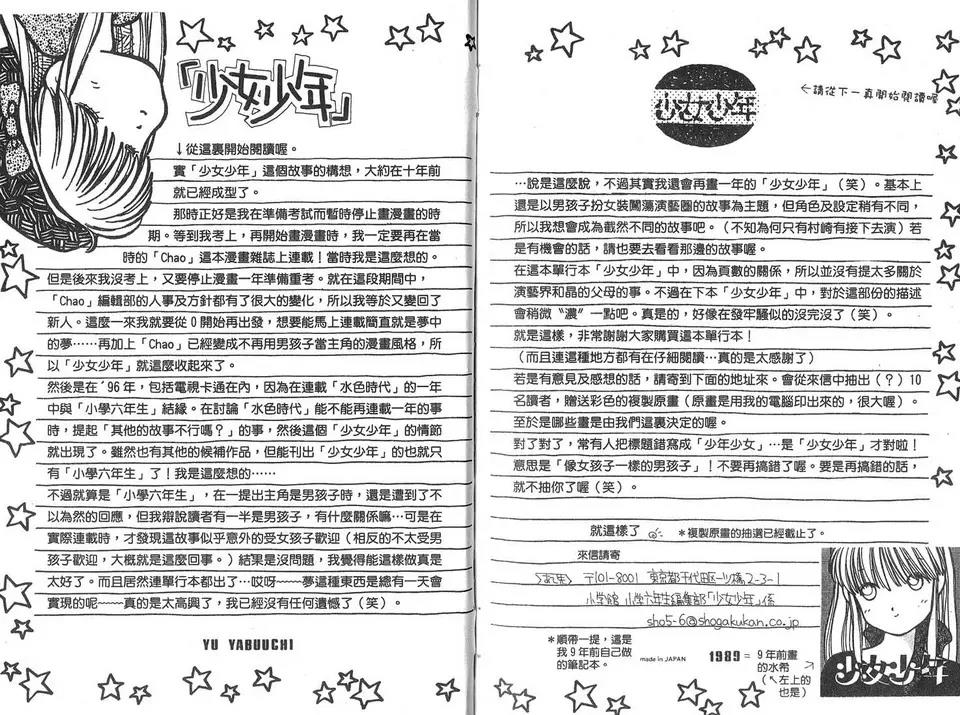 「少女少年」
↓從這裏開始閱讀喔。
實「少女少年」這個故事的構想，大約在十年前
就已經成型了。
那時正好是我在準備考試而暫時停止畫漫畫的時
期。等到我考上，再開始畫漫畫時，我一定要再在當
時的「Chao」這本漫畫雜誌上連載！當時我是這麼想的。
但是後來我沒考上，又要停止漫畫一年準備重考。就在這段期間中，
「Chao」編輯部的人事及方針都有了很大的變化，所以我等於又變回了
新人。這麼一來我就要從０開始再出發，想要能馬上連載簡直就是夢中
的夢……再加上「Chao」已經變成不再用男孩子當主角的漫畫風格，所
以「少女少年」就這麼收起來了。
然後是在´96年，包括電視卡通在內，因為在連載「水色時代」的一年
中與「小學六年生」結緣。在討論「水色時代」能不能再連載一年的事
時，提起「其他的故事不行嗎？」的事，然後這個「少女少年」的情節
就出現了。雖然也有其他的候補作品，但能刊出「少女少年」的也就只
有「小學六年生」了！我是這麼想的……
不過就算是「小學六年生」，在一提出主角是男孩子時，還是遭到了不
以為然的回應，但我辯說讀者有一半是男孩子，有什麼關係嘛…可是在
實際連載時，才發現這故事似乎意外的受女孩子歡迎（相反的不太受男
孩子歡迎，大概就是這麼回事。）結果是沒問題，我覺得能這樣做真是
太好了。而且居然連單行本都出了…哎呀~~~~夢這種東西是總有一天會
實現的呢~~~~真的是太高興了，我已經沒有任何遺憾了（笑）。
YU YABUUCHI
少女少年
←請從下一頁開始閱讀喔
…說是這麼說，不過其實我還會再畫一年的「少女少年」（笑）。基本上
還是以男孩子扮女裝闖蕩演藝圈的故事為主題，但角色及設定稍有不同，
所以我想會成為截然不同的故事吧。（不知為何只有村崎有接下去演）若
是有機會的話，請也要去看看那邊的故事喔。
在這本單行本「少女少年」中，因為頁數的關係，所以並沒有提太多關於
演藝界和晶的父母的事。不過在下本「少女少年」中，對於這部份的描述
會稍微〝濃〞一點吧。真是的，好像在發牢騷似的沒完沒了（笑）。
就是這樣，非常謝謝大家購買這本單行本！
（而且連這種地方都有在仔細閱讀…真的是太感謝了）
若是有意見及感想的話，請寄到下面的地址來。會從來信中抽出（？）10
名讀者，贈送彩色的複製原畫（原畫是用我的電腦印出來的，很大喔）。
至於是哪些畫是由我們這裏決定的喔。
對了對了，常有人把標題錯寫成「少年少女」…是「少女少年」才對啦！
意思是「像女孩子一樣的男孩子」！不要再搞錯了喔。要是再搞錯的話，
就不抽你了喔（笑）。
就這樣了
＊複製原畫的抽選已經截止了。
來信請寄
〈あて先〉 〒101-8001 東京都千代田区一ツ橋2-3-1
小学館 小学六年生編集部「少女少年」係
sho5-6@shogakukan.co.jp
＊順帶一提，這是
我9年前自己做
的筆記本。
made in JAPAN
1989＝9年前畫
的水希
（↖左上的
也是）
少女少年